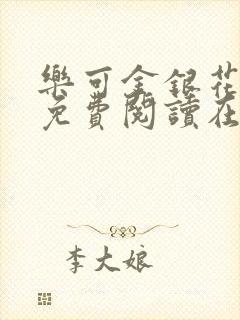 樂可金銀花
免費閱讀在
李大娘